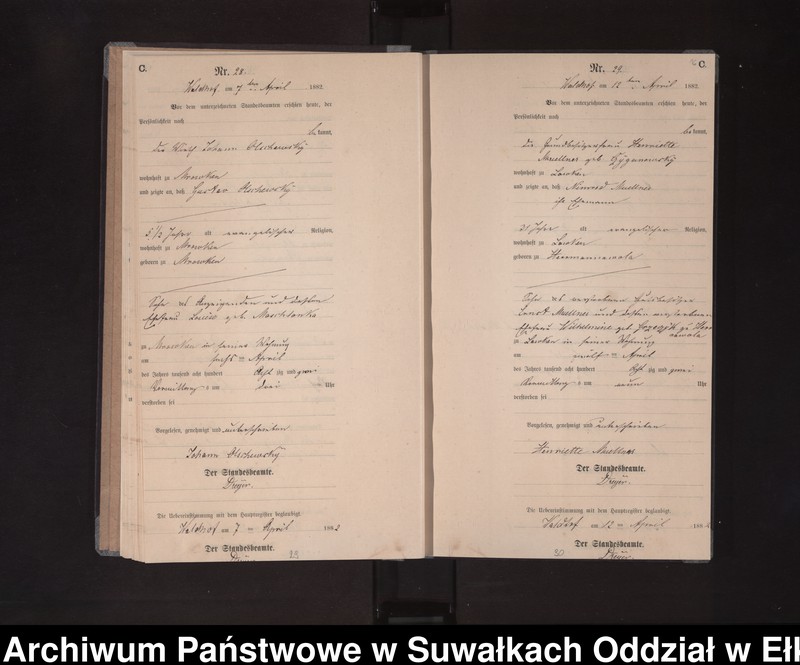 C.
Nr. 28.
Waldhof am 7 ten April 1882
Vor dem unterzeichneten Standesbeamten erschien heute, der
Persönlichkeit nach
be kannt,
der Wirth Johann Olschewsky
wohnhaft zu Mrowken
und zeigte an, daß Gustav Olschewsky
5 1/2 Jahre alt evangelischer Religion,
wohnhaft zu Mrowken
geboren zu Mrowken
Sohn des Anzeigenden und dessen
Ehefrau Louise geb
zu Mrowken in seiner Wohnung
am sechs ten April
des Jahres tausend acht hundert acht zig und zwei
Vormittags um drei Uhr
verstorben sei
Vorgelesen, genehmigt und unterschrieben
Johann Olschewsky
Der Standesbeamte.
Dreyer.
Die Uebereinstimmung mit dem Hauptregister beglaubigt.
Waldhof am 7 ten April 1882
Der Standesbeamte.
Dreyer
29
C.
Nr. 29
Waldhof am 12 ten April 1882.
Vor dem unterzeichneten Standesbeamten erschien heute, der
Persönlichkeit nach
be kannt,
die Grundbesitzerfrau Henriette
Muellner geb
wohnhaft zu
und zeigte an, daß Muellner
ihr Ehemann
Jahre alt evangelischer Religion,
wohnhaft zu
geboren zu Herrmannawola
Sohn des verstorbenen
Muellner und dessen verstorbenen
Ehefrau Wilhelmine geb zu Herr
nawola
zu in seiner Wohnung
am zwölf ten April
des Jahres tausend acht hundert acht zig und zwei
Vormittags um neun Uhr
verstorben sei
Vorgelesen, genehmigt und unterschrieben
Henriette Muellner
Der Standesbeamte.
Dreyer.
Die Uebereinstimmung mit dem Hauptregister beglaubigt.
Waldhof am 12 ten April 188
Der Standesbeamte.
Dreyer
30
Archiwum Państwowe w Suwałkach Oddział w Eł